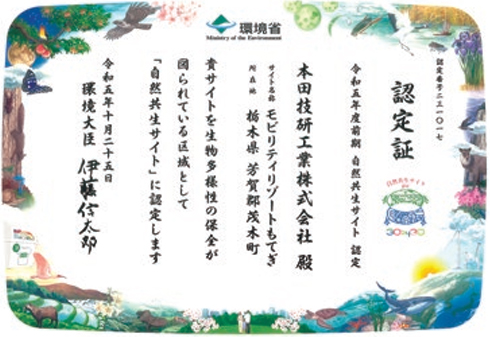 環境省
Ministry of the Environment
認定番号二三一〇一七
認定証
令和五年度前期 自然共生サイト 認定
本田技研工業株式会社 殿
サイト名称 モビリティリゾートもてぎ
所在地 栃木県 芳賀郡茂木町
貴サイトを生物多様性の保全が
図られている区域として
「自然共生サイト」に認定します
令和五年十月二十五日
環境大臣 伊藤信太郎
自然共生サイト
30by30